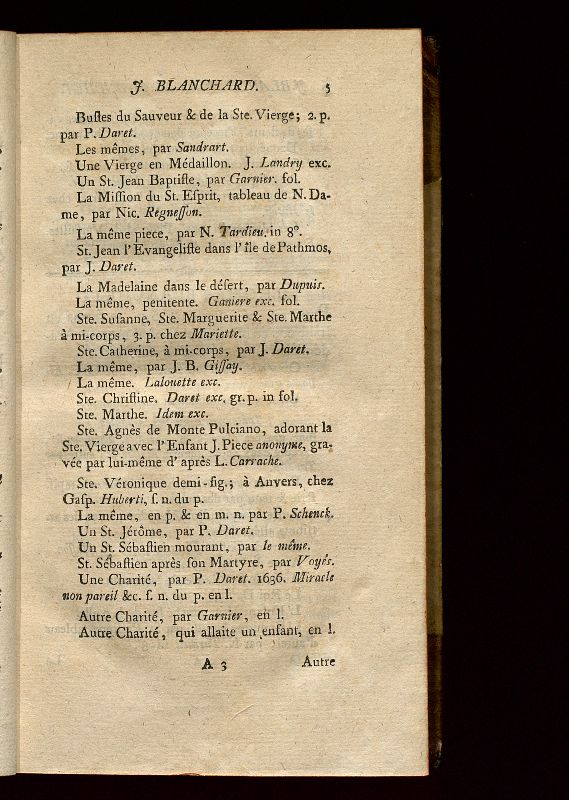 J. BLANCHARD. 5
Buſtes du Sauveur & de la Ste. Vierge; 2. p.
par P. Daret.
Les mêmes, par Sandrart.
Une Vierge en Médaillon. J. Landry exc.
Un St. Jean Baptiſte, par Garnier. fol.
La Miſſion du St. Eſprit, tableau de N. Da-
me, par Nic. Regneſſon.
La même piece, par N. Tardieu. in 8°.
St. Jean l'Evangeliſte dans l'île de Pathmos,
par J. Daret.
La Madelaine dans le déſert, par Dupuis.
La même, penitente. Ganiere exc. fol.
Ste. Suſanne, Ste. Marguerite & Ste. Marthe
à mi-corps, 3. p. chez Mariette.
Ste. Catherine, à mi-corps, par J. Daret.
La même, par J. B. Giſſay.
La même. Lalouette exc.
Ste. Chriſtine. Daret exc. gr. p. in fol.
Ste. Marthe. Idem exc.
Ste. Agnès de Monte Pulciano, adorant la
Ste. Vierge avec l'Enfant J. Piece anonyme, gra-
vée par lui-même d'après L. Carrache.
Ste. Véronique demi-fig.; à Anvers, chez
Gaſp. Huberti, ſ. n. du p.
La même, en p. & en m. n. par P. Schenck.
Un St. Jérôme, par P. Daret.
Un St. Sébaſtien mourant, par le même.
St. Sébaſtien après ſon Martyre, par Voyés.
Une Charité, par P. Daret. 1636. Miracle
non pareil &c. ſ. n. du p. en l.
Autre Charité, par Garnier, en l.
Autre Charité, qui allaite un enfant, en l.
A 3 Autre